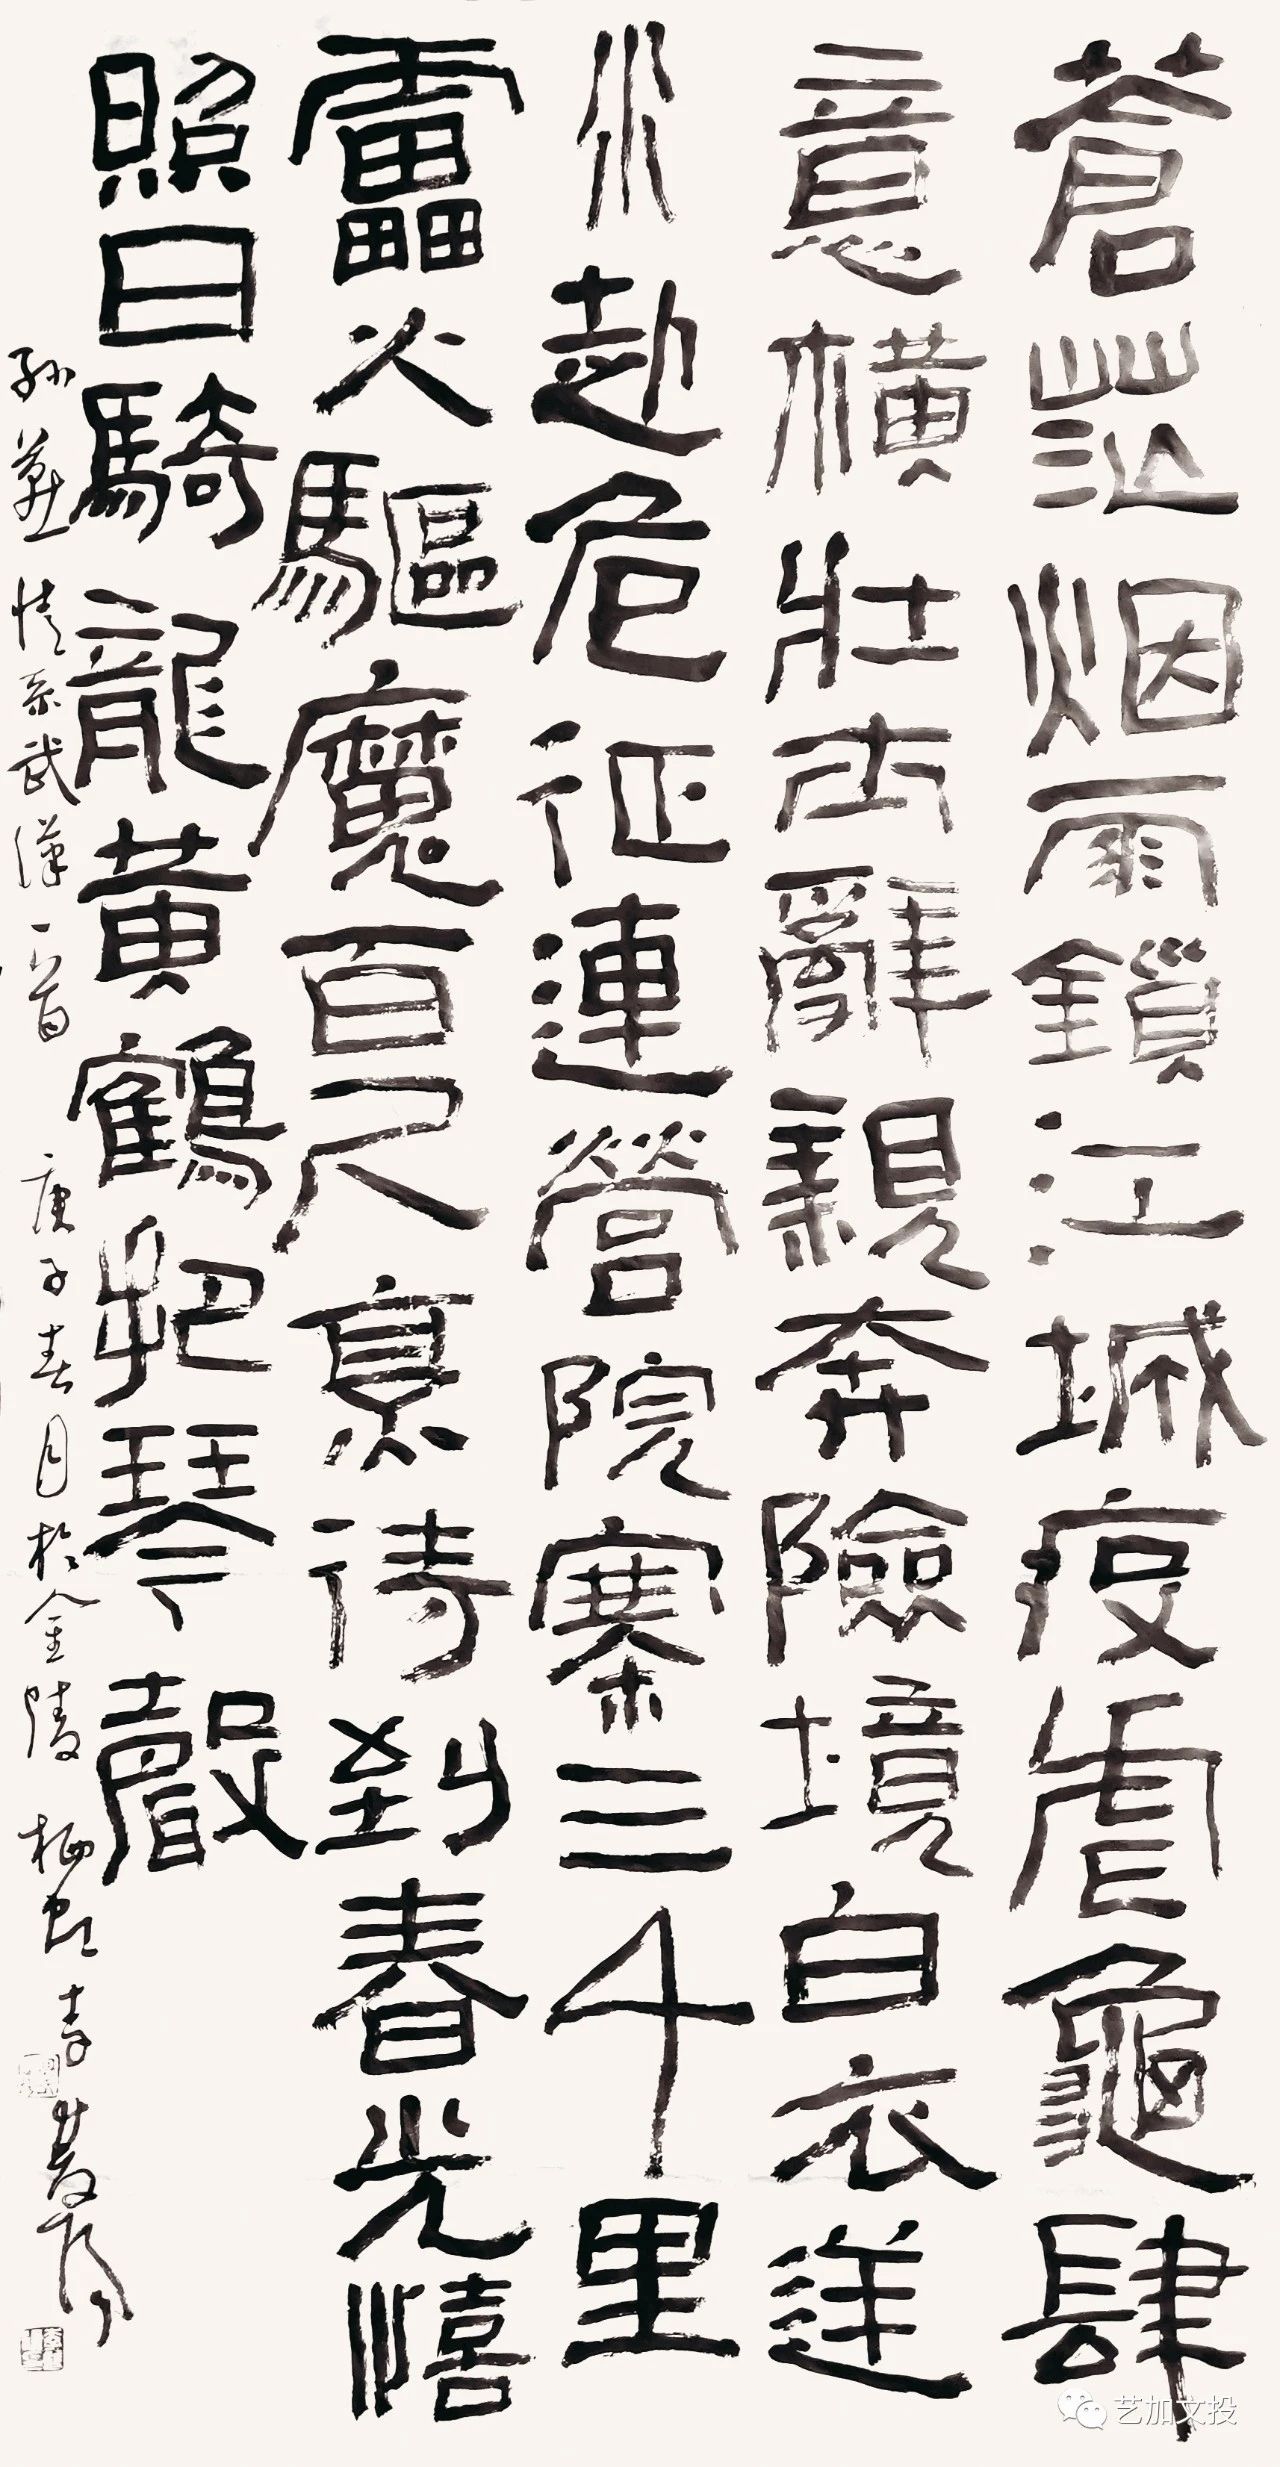 蒼茫烟雨鎖江城疫虐龜肆
意橫壯士辭親奔險境白衣逆
水赴危征連營院寨三千里
靁火驅魔百京待到春光熺
照日騎龍黃鶴把琴聲
孫情系武漢一首 庚子春月於金陵 栖虹
艺加文投